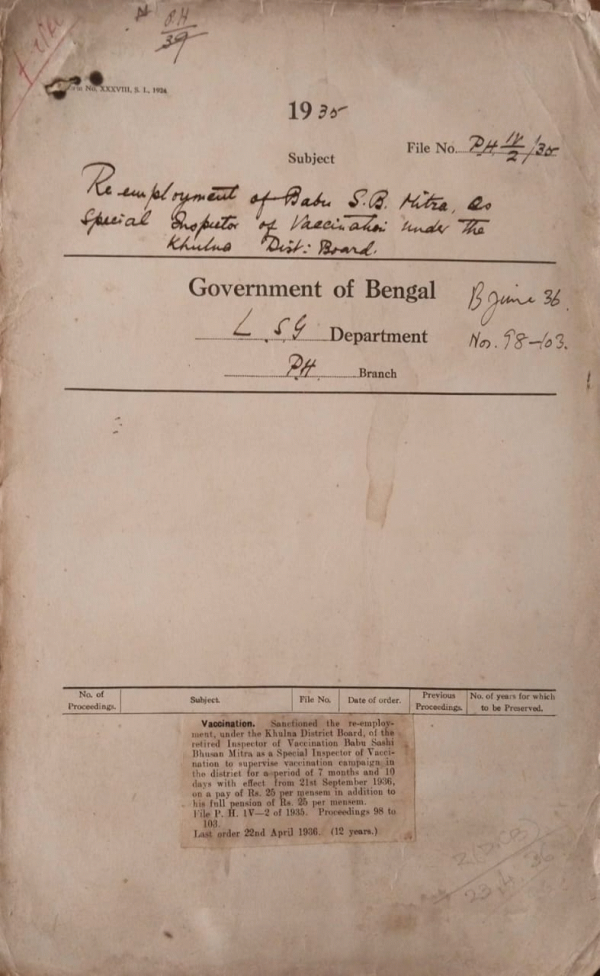 P.H
39
Form No. XXXVIII, S. I., 1934
1935
File No. P.H. IV/2/35
Subject
Re-employment of Babu S.B. Mitra, as
Special Inspector of Vaccination under the
Khulna Dist: Board.
Government of Bengal
B June 36.
L.S.G Department
Nos. 98–103.
P.H. Branch
No. of Proceedings. Subject. File No. Date of order. Previous Proceedings. No. of years for which to be Preserved.
Vaccination. Sanctioned the re-employ-
ment, under the Khulna District Board, of the
retired Inspector of Vaccination Babu Sashi
Bhusan Mitra as a Special Inspector of Vacci-
nation to supervise vaccination campaign in
the district for a period of 7 months and 10
days with effect from 21st September 1936,
on a pay of Rs. 25 per mensem in addition to
his full pension of Rs. 25 per mensem.
File P. H. 1V—2 of 1935. Proceedings 98 to
103.
Last order 22nd April 1936. (12 years.)